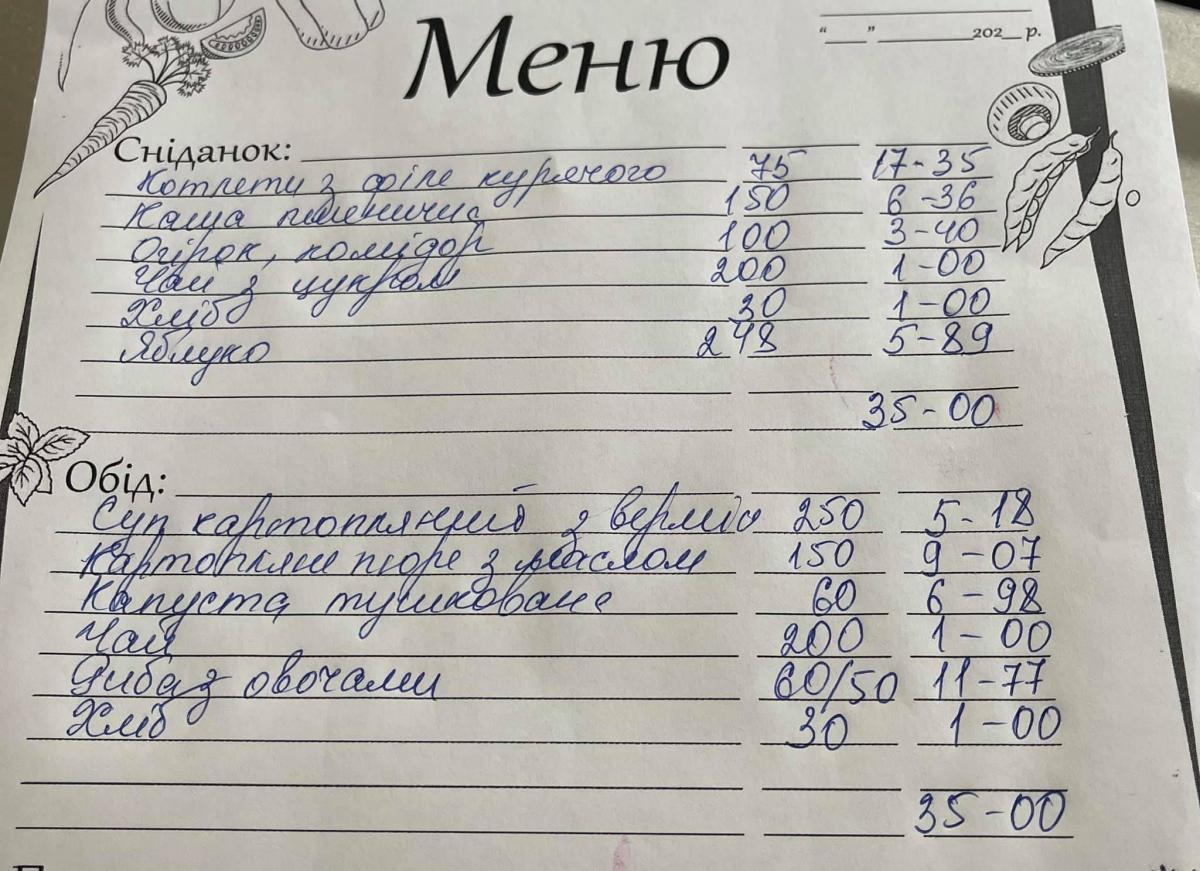 Меню
“___” __________202__р.
Сніданок:
Котлети з філе курячого 75 17-35
Каша пшенична 150 6-36
Огірок, помідор 100 3-40
Чай з цукром 200 1-00
Хліб 30 1-00
Яблуко 248 5-89
35-00
Обід:
Суп картопляний з верміш 250 5-18
Картопляне пюре з маслом 150 9-07
Капуста тушкована 60 6-98
Чай 200 1-00
Риба з овочами 60/50 11-77
Хліб 30 1-00
35-00